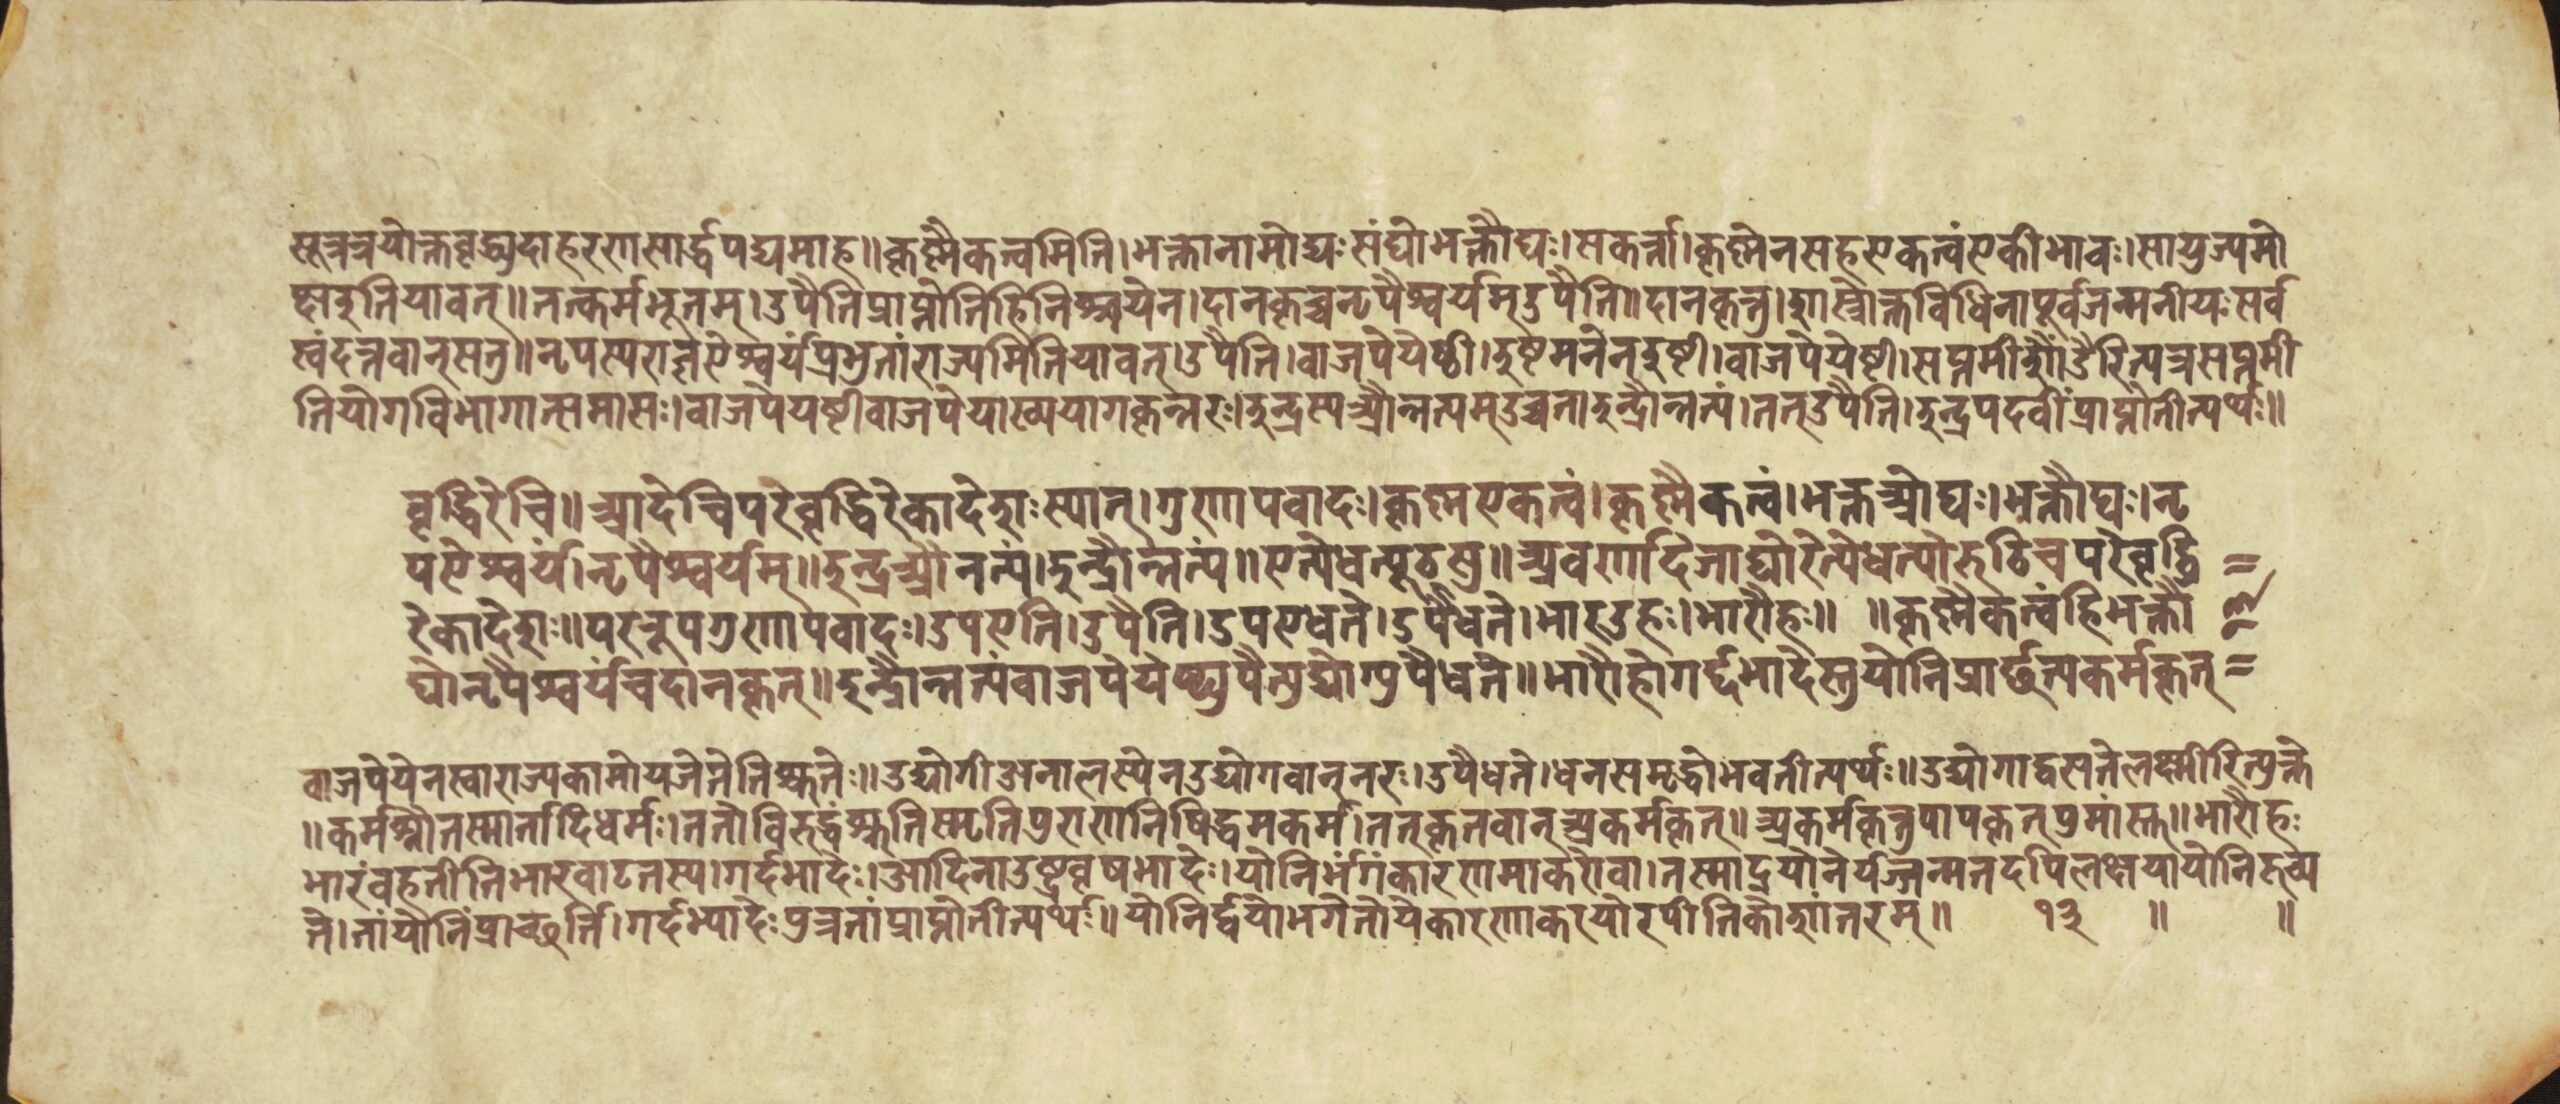 सूत्रत्रयोक्तवृद्ध्युदाहरणसार्द्धपद्यमाह॥कृष्णैकत्वमिति।भक्तानामोघःसंघोभक्तौघः।सकर्त्ता।कृष्णेनसहएकत्वंएकीभावः।सायुज्यमो
क्षइतियावत्॥तत्कर्मभूतम्।उपैतिप्राप्नोतिहिनिश्चयेन।दानकृच्चनृपैश्वर्यम्उपैति॥दानकृत्तु।शास्त्रोक्तविधिनापूर्वजन्मनीयःसर्व
स्वंदत्तवान्सतु॥नृपस्यराज्ञःऐश्वर्यंप्रभुतांराज्यमितियावत्।उपैति।वाजपेयेष्टी।इष्टमनेन्इष्टी।वाजपेयेष्टी।सप्तमीशौंडैरित्यत्रसप्तमी
तियोगविभागात्समासः।वाजपेयष्टीवाजपेयाख्ययागकृन्नरः।इन्द्रस्यऔन्नत्यम्उच्चता।इन्द्रौन्नत्यं।तत्उपैति।इन्द्रपदवींप्राप्नोतीत्यर्थः॥
वृद्धिरेचि॥आदेचिपरेवृद्धिरेकादेशःस्यात्।गुणापवादः।कृष्णएकत्वं।कृष्णैकत्वं।भक्तओघः।भक्तौघः।नृ
पऐश्वर्यं।नृपैश्वर्यम्॥इन्द्रऔनत्यं।इन्द्रौन्नत्यं॥एत्येधत्यूठसु॥अवर्णादेजाद्योरेत्येधत्योरुठिचपरेवृद्धि
रेकादेशः॥पररूपगुणापवादः।उपएति।उपैति।उपएधते।उपैधते।भारउहः।भारौहः॥ ॥कृष्णैकत्वंहिभक्तौ
घोनृपैश्वर्यंचदानकृत्॥इन्द्रौन्नत्यंवाजपेयेष्ट्युपैत्युद्योग्युपैधते॥भारौहोगर्द्दभादेस्तुयोनिप्रार्छत्यकर्मकृत्
वाजपेयेनस्वाराज्यकामोयजेतेतिश्रुतेः॥उद्योगीअनालस्येनउद्योगवान्नरः।उपैधते।धनसमृद्धोभवतीत्यर्थः॥उद्योगाद्वसतेलक्ष्मीरित्युक्ते
॥कर्मश्रौतस्मार्तादिधर्मः।ततोविरुद्धंश्रुतिस्मृतिपुराणनिषिद्धमकर्म।तत्कृतवान्अकर्मकृत्॥अकर्मकृत्तुपापकृत्पुमांस्तु॥भारौहः
भारंवहतीतिभारवाटतस्य।गर्दभादेः।आदिनाउष्ट्रवृषभादेः।योनिर्भगंकारणमाकरोवा।तस्माद्वयोनेर्यज्जन्मतदपिलक्षणयायोनिरुच्य
ते।तांयोनिंप्रार्च्छति।गर्दभ्यादेःपुत्रतांप्राप्नोतीत्यर्थः॥योनिर्द्वयोर्भगेतोयेकारणाकरयोरपीतिकोशांतरम्॥ १३ ॥ ॥